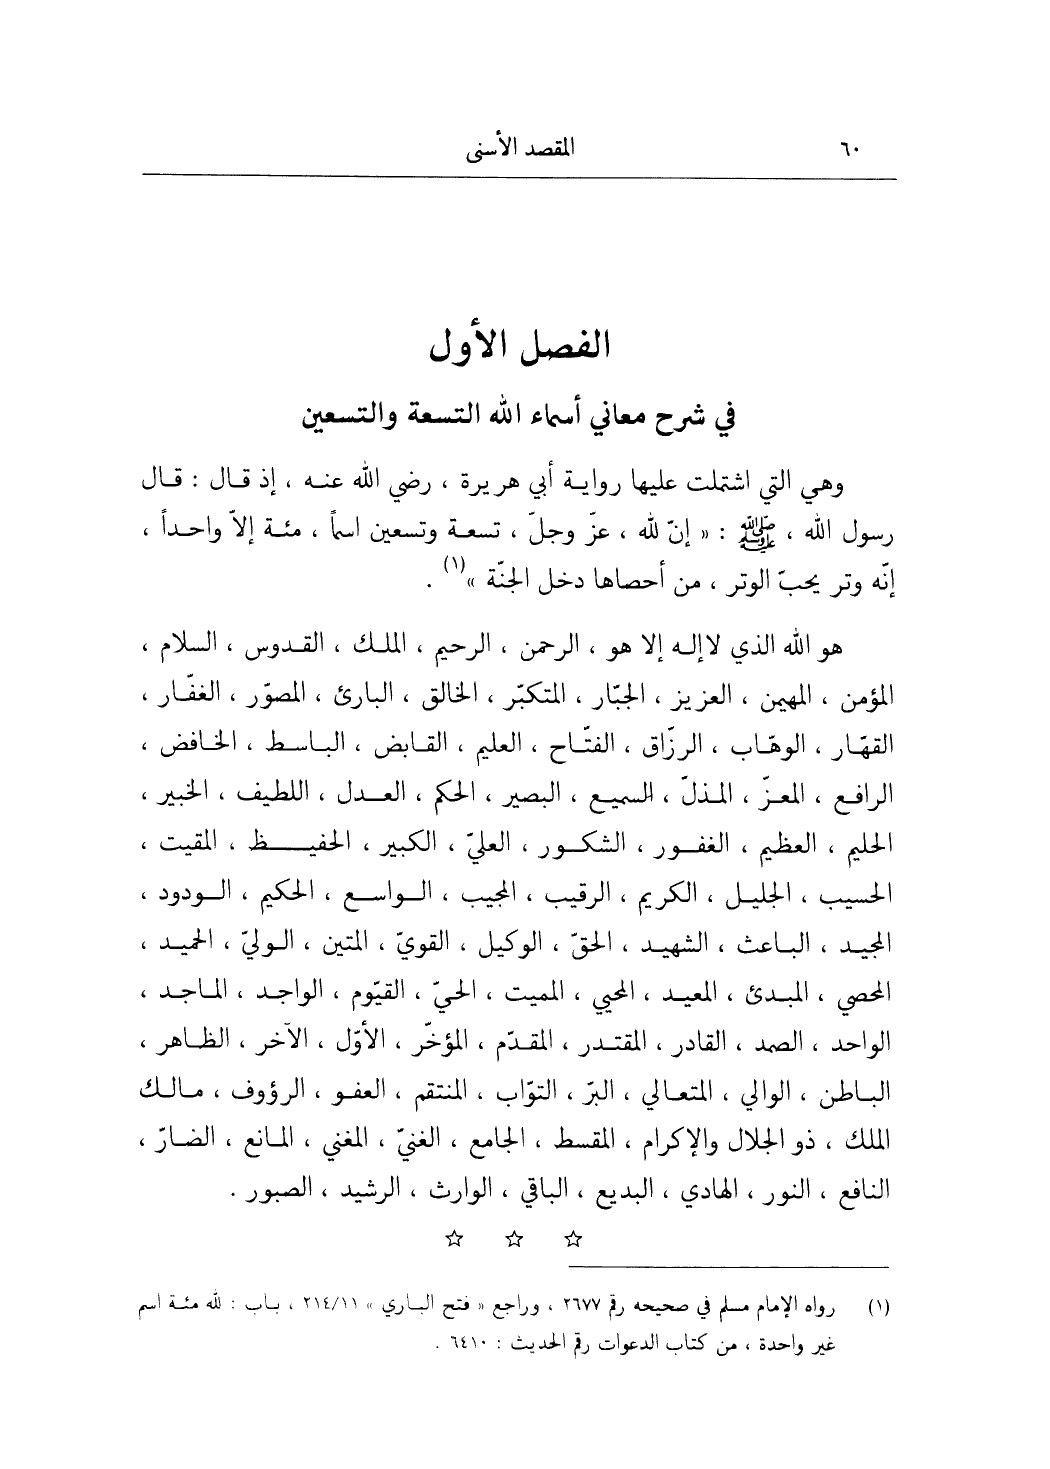 ٦٠ المقصد الأسنى
الفصل الأول
في شرح معاني أسماء الله التسعة والتسعين
وهي التي اشتملت عليها رواية أبي هريرة ، رضي الله عنه ، إذ قال : قال
رسول الله ، ﷺ : « إنّ لله ، عزّ وجلّ ، تسعة وتسعين اسماً ، مئة إلاّ واحداً ،
إنّه وتر يحبّ الوتر ، من أحصاها دخل الجنّة »(١) .
هو الله الذي لا إله إلا هو ، الرحمن ، الرحيم ، الملك ، القدوس ، السلام ،
المؤمن ، المهيمن ، العزيز ، الجبّار ، المتكبّر ، الخالق ، البارئ ، المصوّر ، الغفّار ،
القهّار ، الوهّاب ، الرزّاق ، الفتّاح ، العليم ، القابض ، الباسط ، الخافض ،
الرافع ، المعزّ ، المذلّ ، السميع ، البصير ، الحكم ، العدل ، اللطيف ، الخبير ،
الحليم ، العظيم ، الغفور ، الشكور ، العليّ ، الكبير ، الحفيظ ، المقيت ،
الحسيب ، الجليل ، الكريم ، الرقيب ، المجيب ، الواسع ، الحكيم ، الودود ،
المجيد ، الباعث ، الشهيد ، الحقّ ، الوكيل ، القويّ ، المتين ، الوليّ ، الحميد ،
المحصي ، المبدئ ، المعيد ، المحيي ، المميت ، الحيّ ، القيّوم ، الواجد ، الماجد ،
الواحد ، الصمد ، القادر ، المقتدر ، المقدّم ، المؤخّر ، الأوّل ، الآخر ، الظاهر ،
الباطن ، الوالي ، المتعالي ، البرّ ، التوّاب ، المنتقم ، العفو ، الرؤوف ، مالك
الملك ، ذو الجلال والإكرام ، المقسط ، الجامع ، الغنيّ ، المغني ، المانع ، الضارّ ،
النافع ، النور ، الهادي ، البديع ، الباقي ، الوارث ، الرشيد ، الصبور .
☆ ☆ ☆
(١) رواه الإمام مسلم في صحيحه رقم ٢٦٧٧ ، وراجع « فتح الباري » ٢١٤/١١ ، باب : لله مئة اسم
غير واحدة ، من كتاب الدعوات رقم الحديث : ٦٤١٠ .